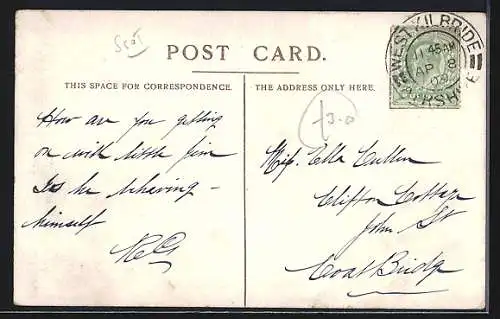 Scot
POST CARD.
WEST KILBRIDE
11 45 AM
AP 8
AYRSHIRE
THIS SPACE FOR CORRESPONDENCE.
THE ADDRESS ONLY HERE.
£3-0
How are you getting
on with little Jim
Is he behaving -
himself
Miss. Ella Cullen
Clifton Cottage
John St
Coat Bridge